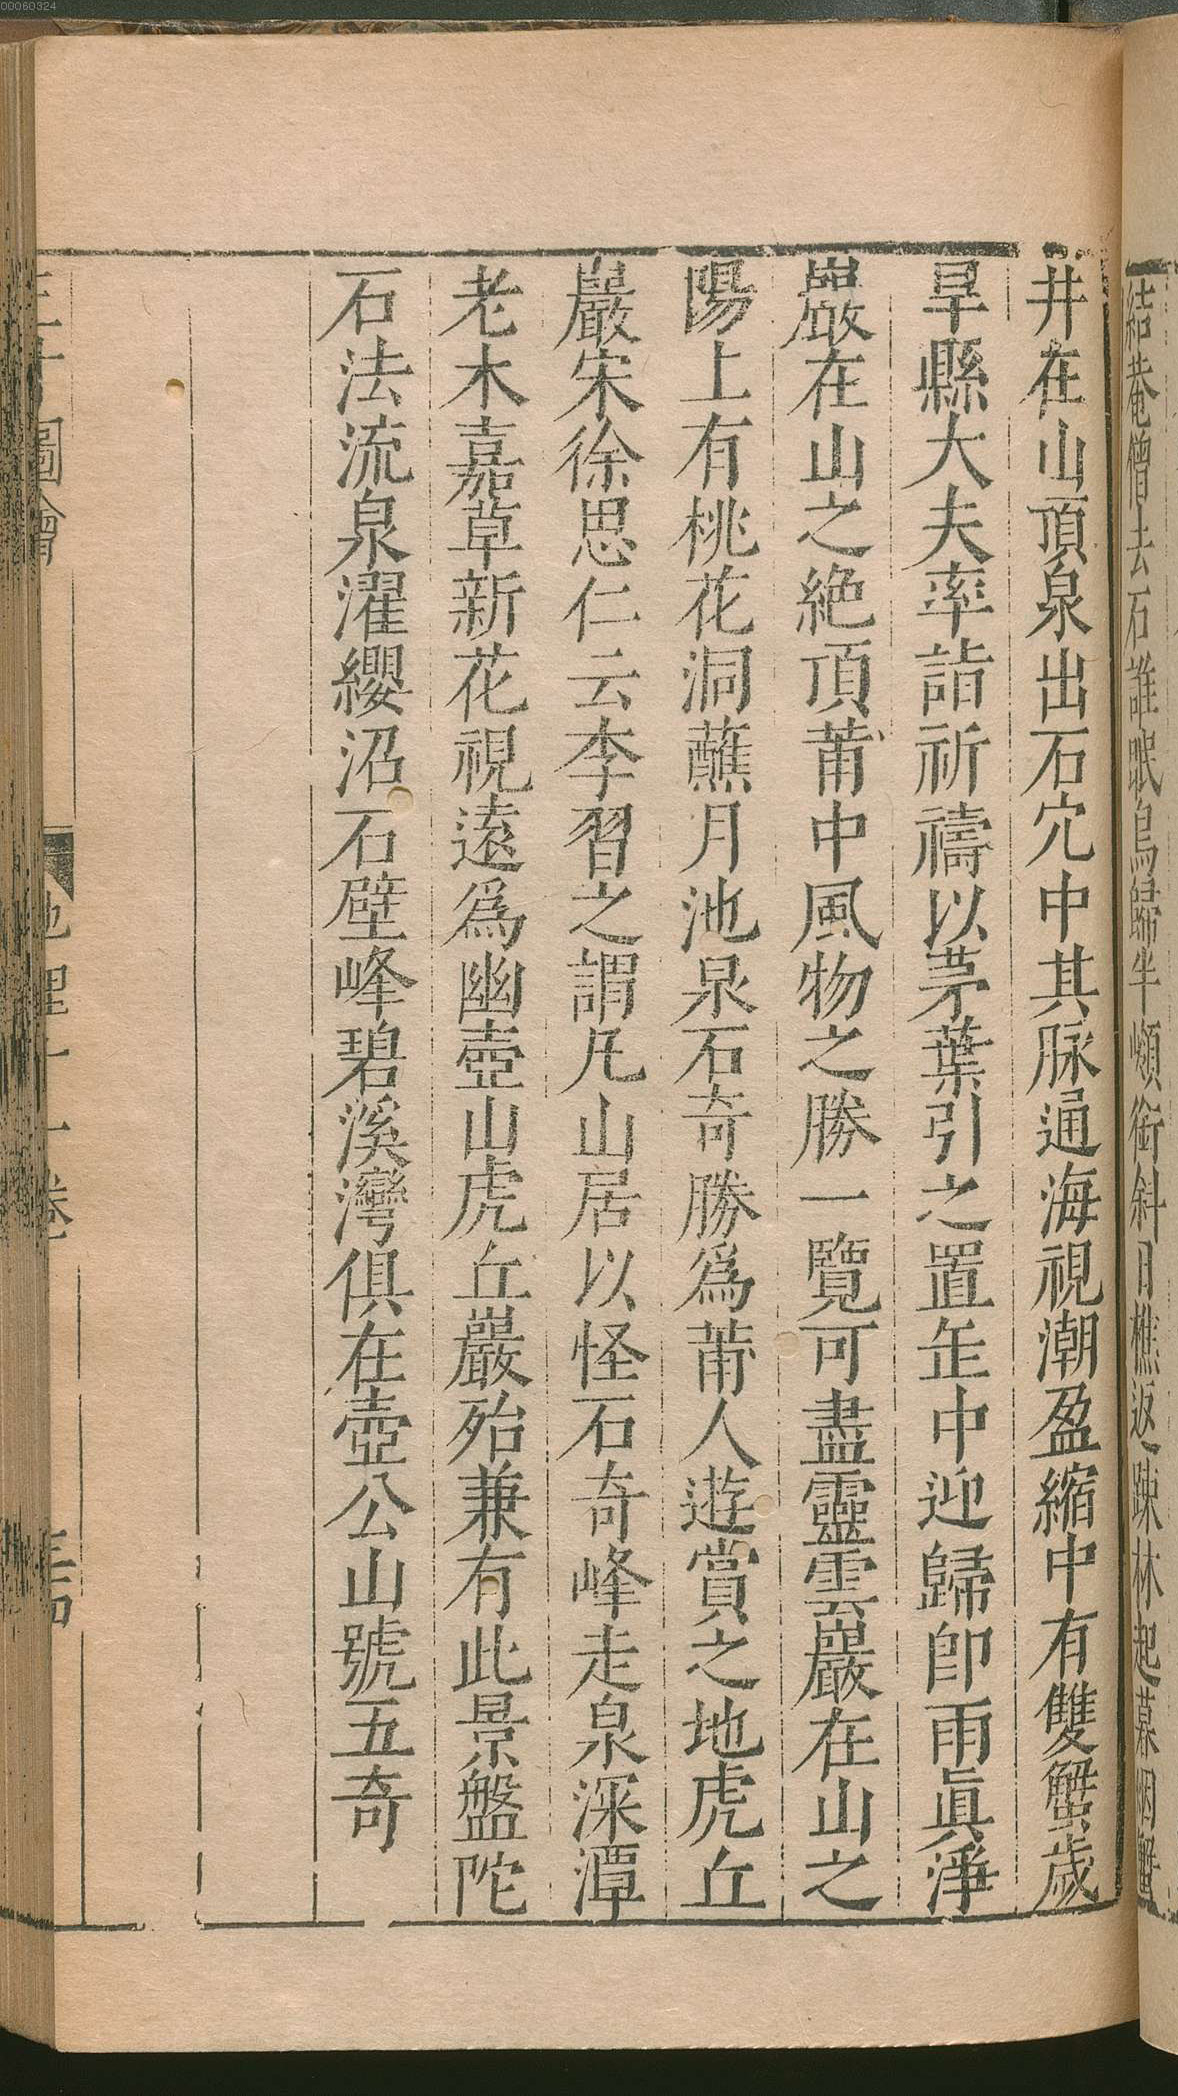 00060324
結菴僧去石誰眠鳥歸半嶺銜斜日樵返踈林起暮烟蟹
井在山頂泉出石穴中其脉通海視潮盈縮中有雙蟹歲
旱縣大夫率詣祈禱以茅葉引之置缶中迎歸卽雨眞淨
巖在山之絶頂莆中風物之勝一覽可盡靈雲巖在山之
陽上有桃花洞蘸月池泉石奇勝爲莆人遊賞之地虎丘
巖宋徐思仁云李習之謂凡山居以怪石奇峰走泉深潭
老木嘉草新花視遠爲幽壺山虎丘巖殆兼有此景盤陀
石法流泉濯纓沼石壁峰碧溪灣俱在壺公山號五奇
三才圖會 地理十一卷